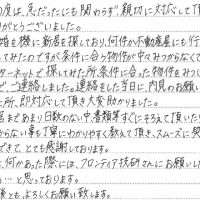 度は、急だったにも関わらず親切に対応して頂
がとうございました。
婚を機に新居を探しており、何件か不動産屋にも行
してみたのですが条件に合う物件がやみつからなくて
ターネットで探してみた所、条件に合った物件をみつけ
で、ご連絡しました。連絡をした当日に、内見のお願い
た所、即対応して頂き大変助かりました。
居まであまり日数のない中書類等すぐにそろえて頂いたり
からない事も丁寧にわかりやすく教えて頂き、スムーズに契
できて、とても感謝しております。
、何かあった際には、フロンティア技研さんにお願いし
…と思っております。
後とも、よろしくお願い致します。